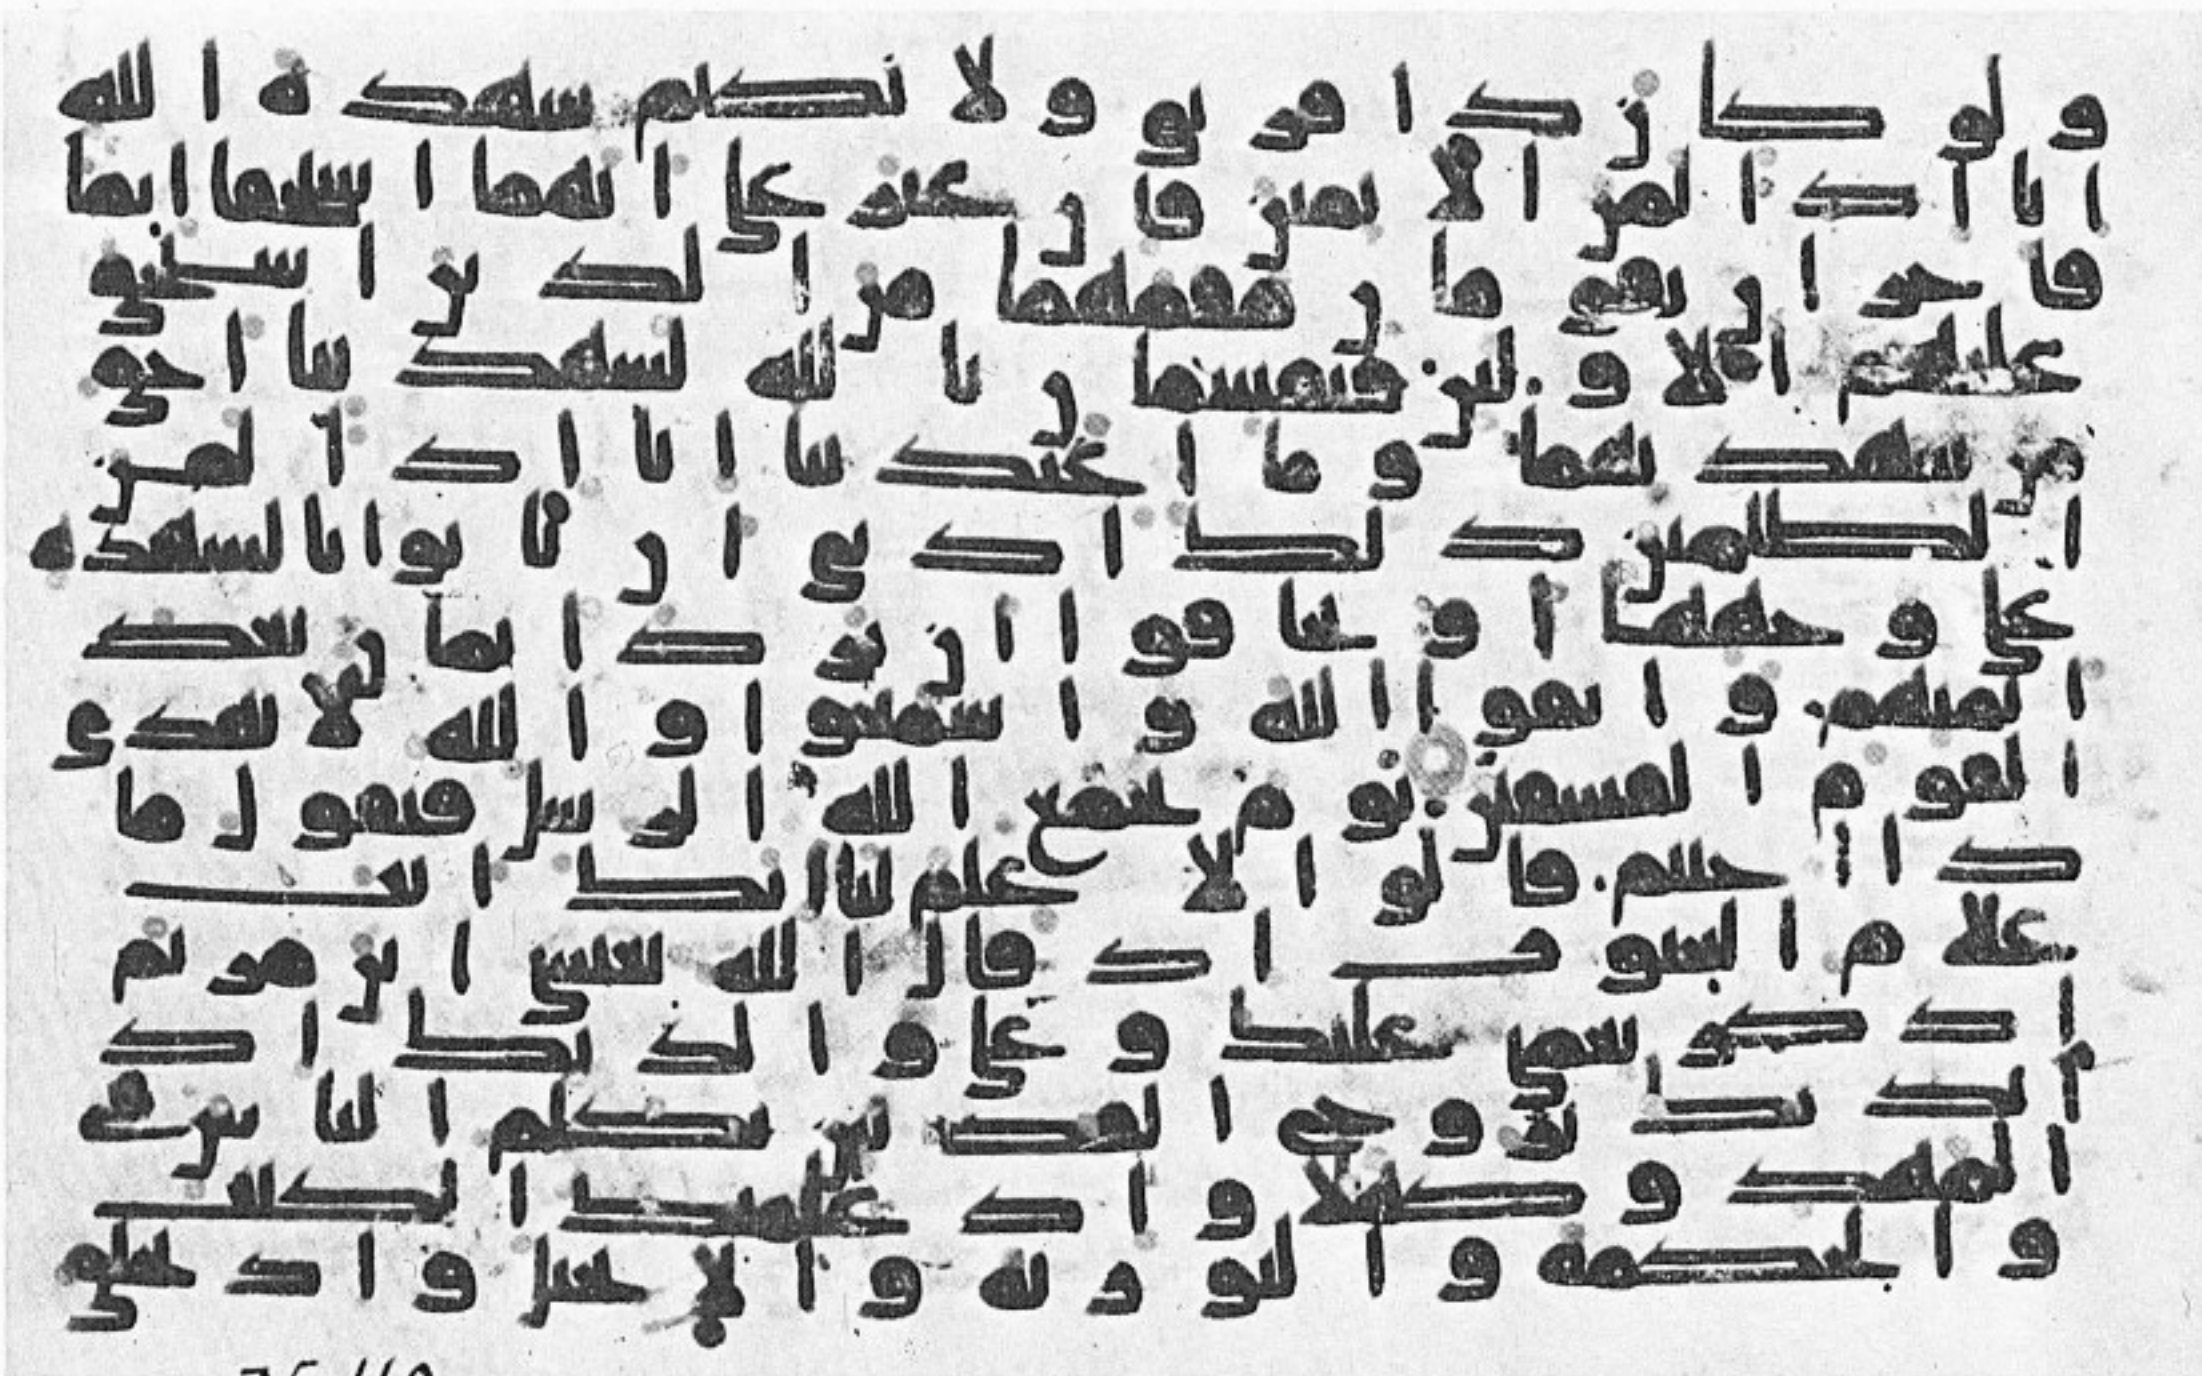 ولو كان ذا قربى ولا نكتم شهدة الله
انا اذا لمن الاثمين فان عثر على انهما استحقا اثما
فاخران يقومان مقمهما من الذين استحق
عليهم الاولين فيقسمان بالله لشهدتنا احق
من شهدتهما وما اعتدينا انا اذا لمن
الظلمين ذلك ادنى ان ياتوا بالشهدة
على وجهها او يخافوا ان ترد ايمان بعد
ايمنهم واتقوا الله واسمعوا والله لا يهدي
القوم الفسقين يوم يجمع الله الرسل فيقول ما
ذا اجبتم قالوا لا علم لنا انك انت
علام الغيوب اذ قال الله يعيسى ابن مريم
اذكر نعمتي عليك وعلى والدتك اذ
ايدتك بروح القدس تكلم الناس في
المهد وكهلا واذ علمتك الكتب
والحكمة والتورية والانجيل واذ تخلق